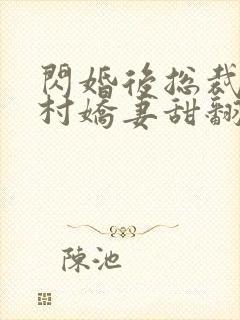 閃婚後總裁
村嬌妻甜翻
陳池